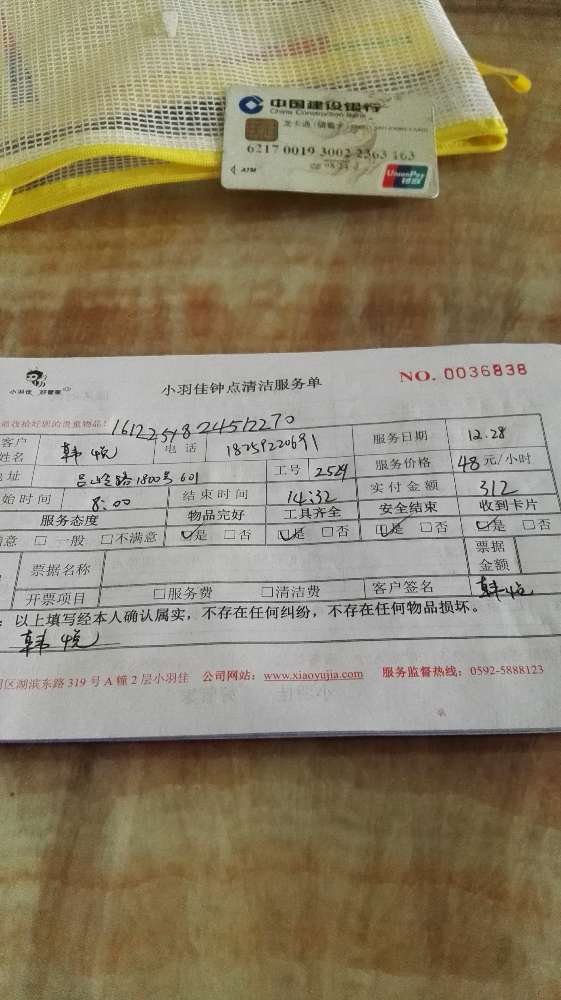 中国建设银行
China Construction Bank
龙卡通（储蓄卡）
6217 0019 3002
ATM
UnionPay
银联
小羽佳 好管家
小羽佳钟点清洁服务单
NO. 0036838
收拾好您的贵重物品！
客户姓名 韩悦 电话 18259220691 服务日期 12.28
址 吕岭路1800号601 工号 2529 服务价格 48元/小时
始时间 8:00 结束时间 14:32 实付金额 312
服务态度 物品完好 工具齐全 安全结束 收到卡片
满意 □一般 □不满意 ☑是 □否 ☑是 □否 ☑是 □否 ☑是 □否
票据名称 票据金额
开票项目 □服务费 □清洁费 客户签名 韩悦
：以上填写经本人确认属实，不存在任何纠纷，不存在任何物品损坏。
韩悦
区湖滨东路 319 号 A 幢 2 层小羽佳 公司网站：www.xiaoyujia.com 服务监督热线：0592-5888123